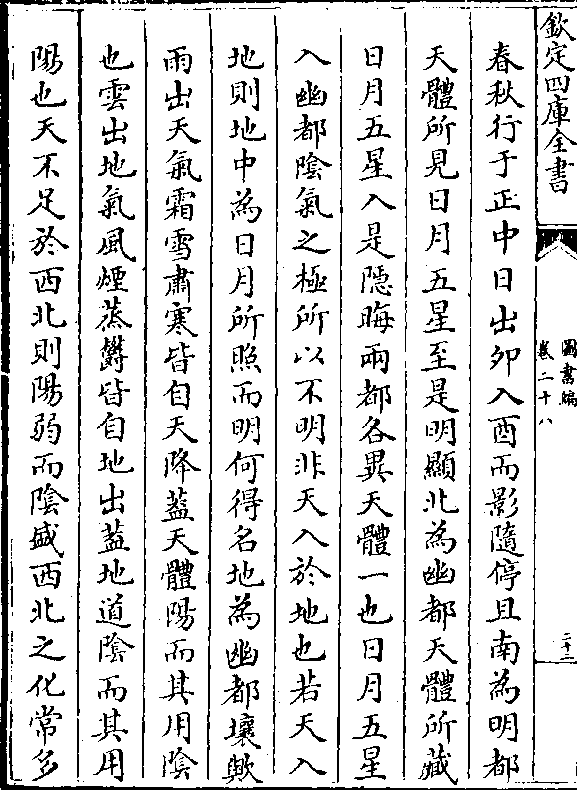 欽定四庫全書
圖書編
卷二十八
二十二
春秋行于正中日出卯入酉而影隨停且南為明都
天體所見日月五星至是明顯北為幽都天體所藏
日月五星入是隱晦兩都各異天體一也日月五星
入幽都陰氣之極所以不明非天入於地也若天入
地則地中為日月所照而明何得名地為幽都壤歟
雨出天氣霜雪肅寒皆自天降蓋天體陽而其用陰
也雲出地氣風煙蒸欝皆自地出蓋地道陰而其用
陽也天不足於西北則陽弱而陰盛西北之化常多